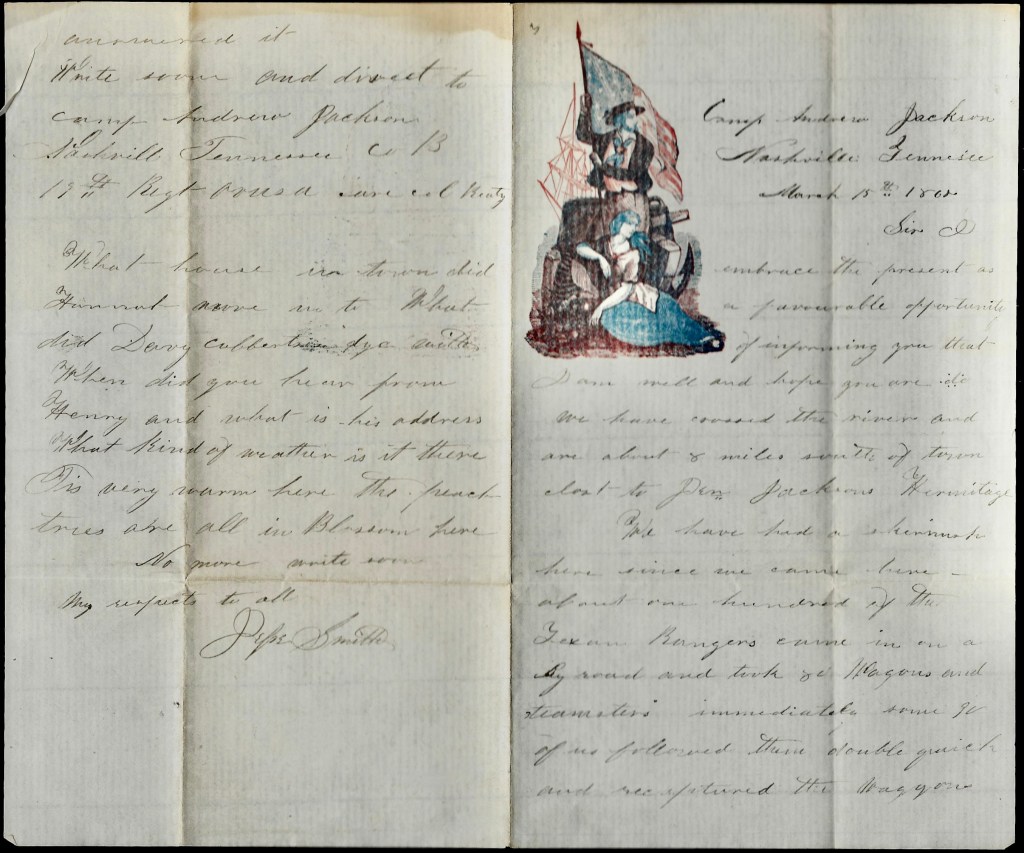 answered it
Write soon and direct to
camp Andrew Jackson
Nashvill Tennessee Co B
19th Regt OVUSA care col Beaty
What house in town did
Hannah move in to What
did Davy dye with
When did you hear from
Henry and what is his address
What kind of weather is it there
Tis very warm here the peach
trees are all in Blossom here
No more write soon
My respects to all
Jesse Smith
Camp Andrew Jackson
Nashville Tennesee
March 15th 1862
Sir I
embrace the present as
a favourable opportunity
of informing you that
I am well and hope you are
we have crossed the river and
are about 8 miles south of town
clost to Jacksons Hermitage
We have had a skirmish
here since we came here –
about one hundred of the
Texan Rangers came in on a
By road and took Wagons and
teamsters immediately some
of us followed them double quick
and recaptured the Waggons